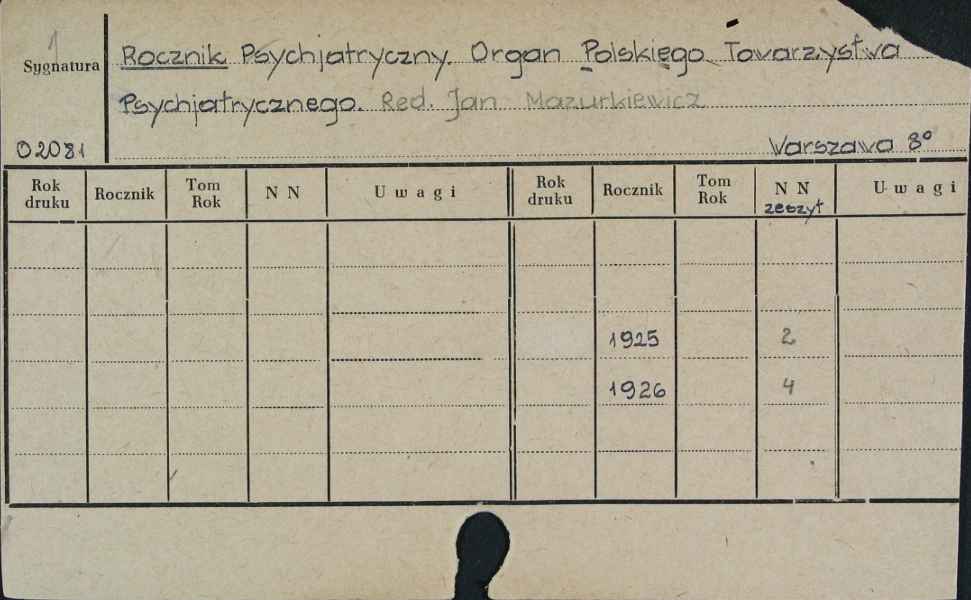 1
Sygnatura
Rocznik Psychjatryczny. Organ Polskiego Towarzystwa
Psychjatrycznego. Red. Jan Mazurkiewicz
02081
Warszawa 8°
Rok druku Rocznik Tom Rok N N Uwagi Rok druku Rocznik Tom Rok N N zeszyt Uwagi
1925 2
1926 4